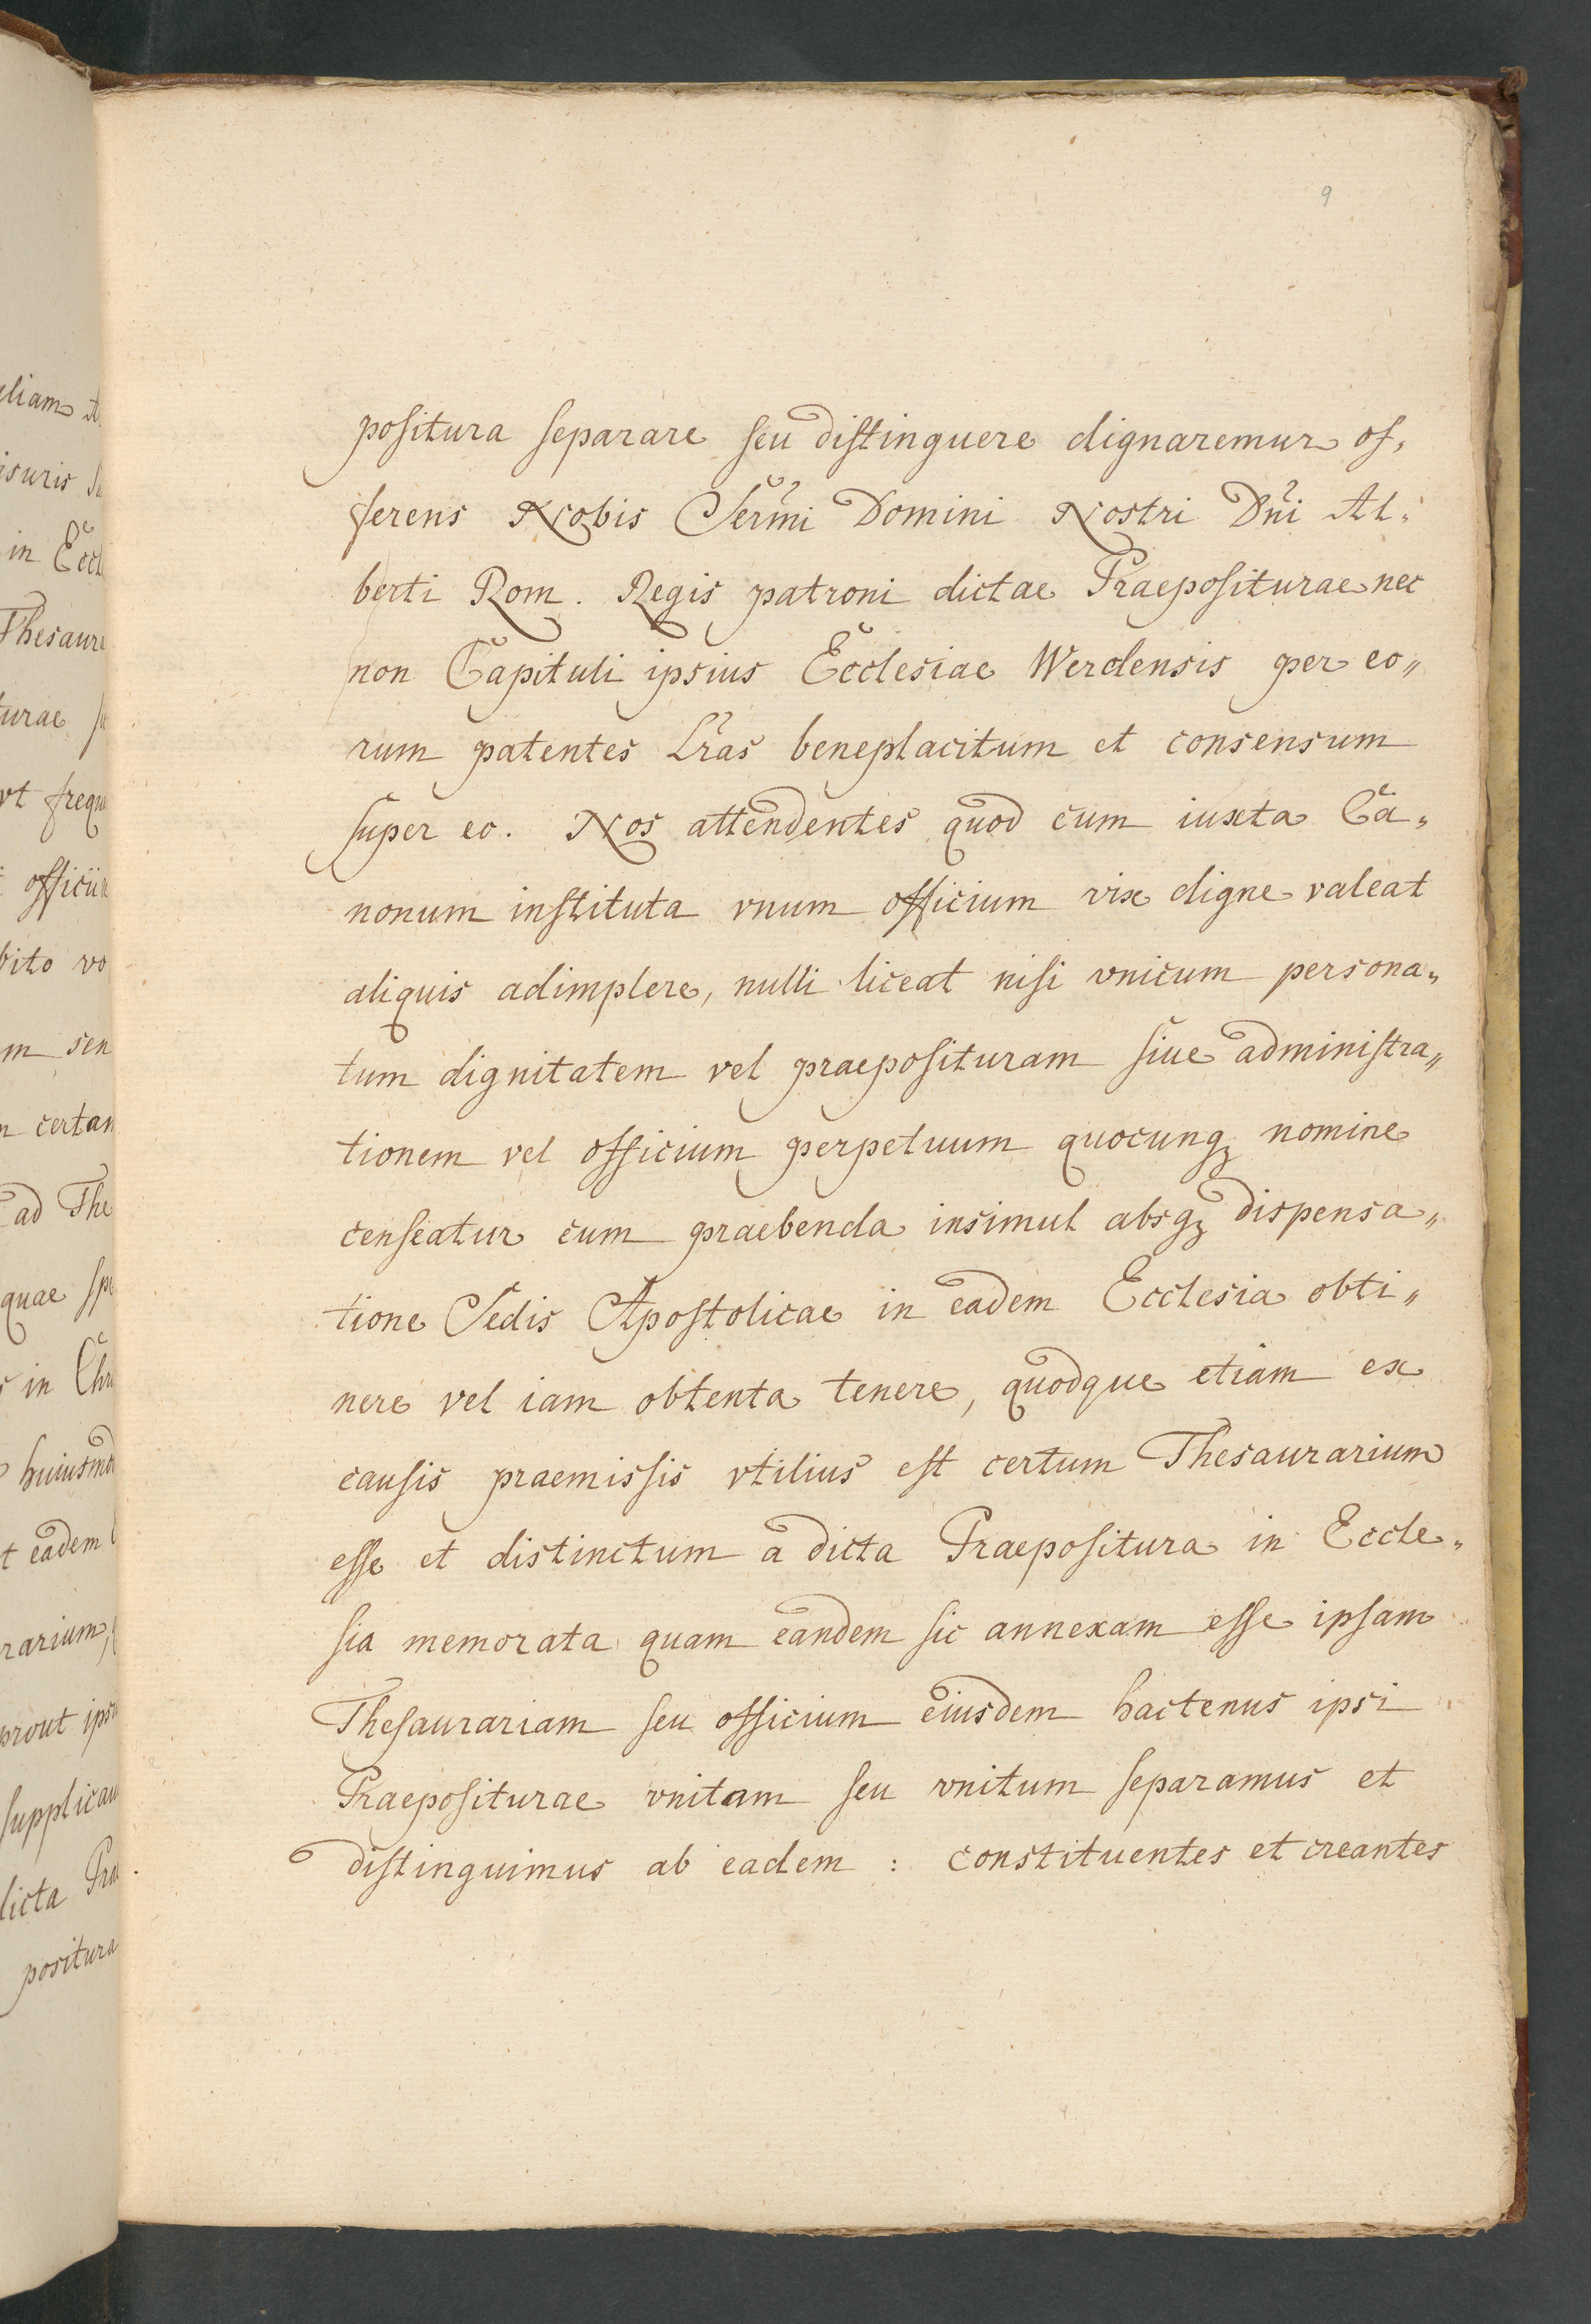 9
positura separare seu distinguere dignaremur of„
ferens Nobis Sermi Domini Nostri Dni Al„
berti Rom. Regis patroni dictae Praepositurae nec
non Capituli ipsius Ecclesiae Werdensis per eo„
rum patentes Lras beneplacitum et consensum
super eo. Nos attendentes quod cum iuxta Ca„
nonum instituta vnum officium vix digne valeat
aliquis adimplere, nulli liceat nisi vnicum persona„
tum dignitatem vel praeposituram siue administra„
tionem vel officium perpetuum quocunqꝫ nomine
censeatur cum praebenda insimul absqꝫ dispensa„
tione Sedis Apostolicae in eadem Ecclesia obti„
nere vel iam obtenta tenere, quodque etiam ex
causis praemissis vtilius est certum Thesaurarium
esse et distinctum a dicta Praepositura in Eccle„
sia memorata quam eandem sic annexam esse ipsam
Thesaurariam seu officium eiusdem hactenus ipsi
Praepositurae vnitam seu vnitum separamus et
distinguimus ab eadem : constituentes et creantes